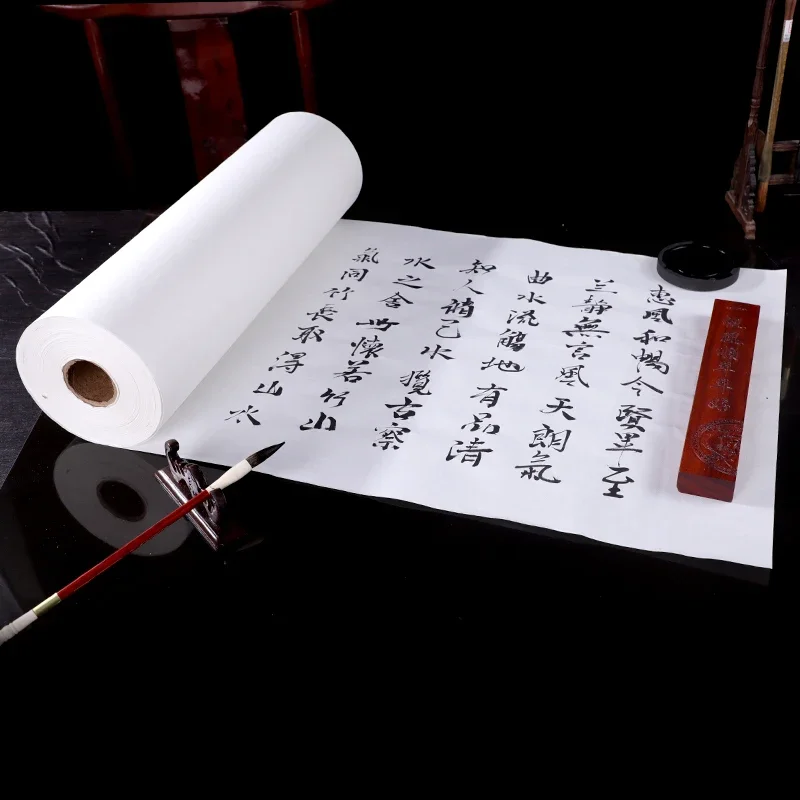 惠風和暢今賢畢至
兰静無言風天朗氣
曲水流觴地有品清
知人脩己水攬古察
水之舍世懷若竹山
氣同竹長取淂山水